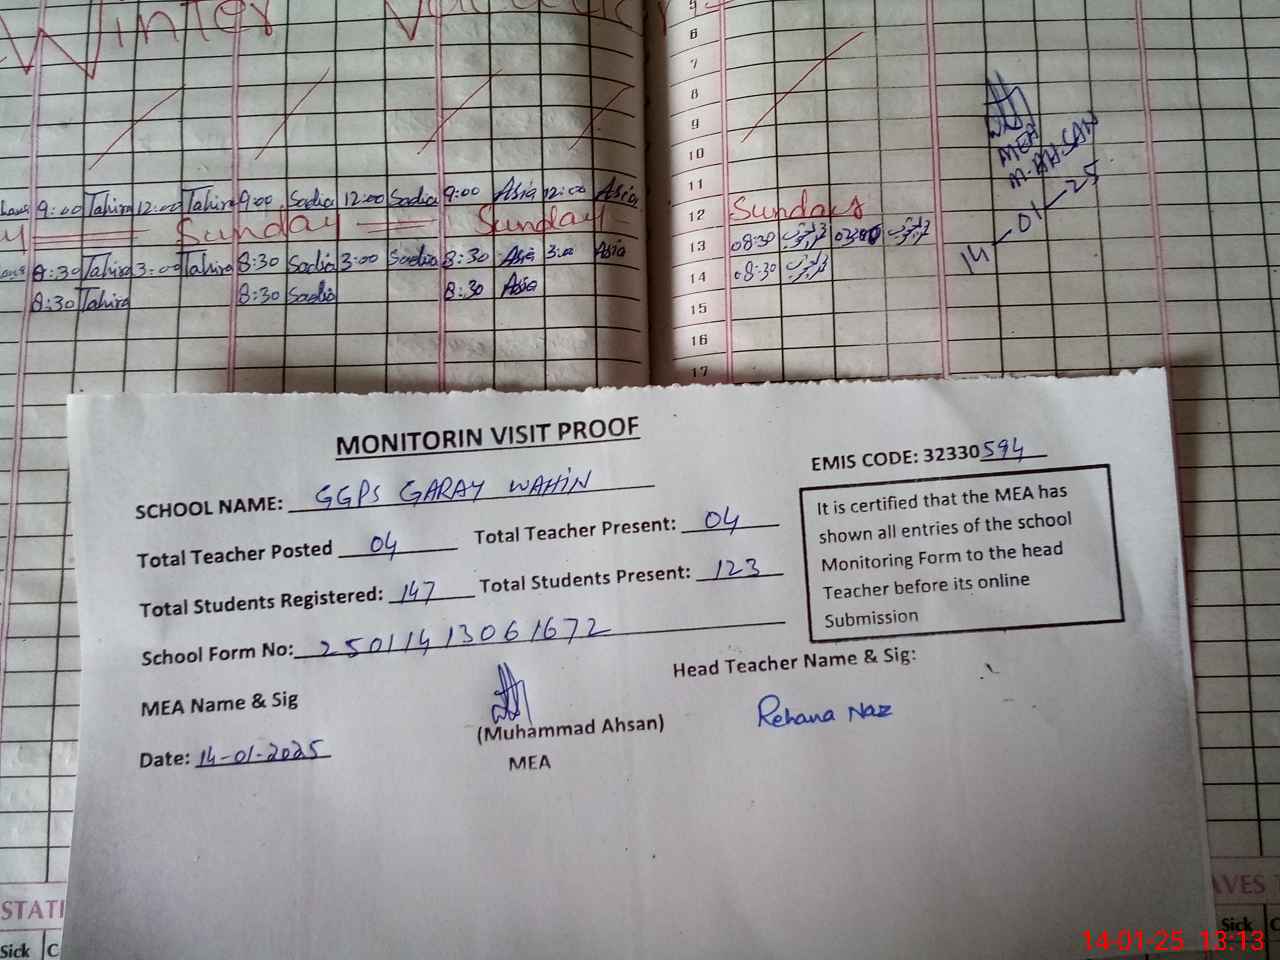 Winter
9:00 Tahira 12:00 Tahira 9:00 Sadia 12:00 Sadia 9:00 Asia 12:00 Asia
Sunday Sunday
8:30 Tahira 3:00 Tahira 8:30 Sadia 3:00 Sadia 8:30 Asia 3:00 Asia
8:30 Tahira 8:30 Sadia 8:30 Asia
6
7
8
9
10
11
12 Sunday
13 08:30
14 08:30
15
16
17
MEA
M. AHSAN
14-01-25
MONITORIN VISIT PROOF
EMIS CODE: 32330594
SCHOOL NAME: GGPS GARAY WAHIN
Total Teacher Posted 04 Total Teacher Present: 04
Total Students Registered: 147 Total Students Present: 123
School Form No: 25011413061672
It is certified that the MEA has
shown all entries of the school
Monitoring Form to the head
Teacher before its online
Submission
MEA Name & Sig
Head Teacher Name & Sig:
(Muhammad Ahsan)
Rehana Naz
Date: 14-01-2025
MEA
Sick
Sick
14-01-25 13:13